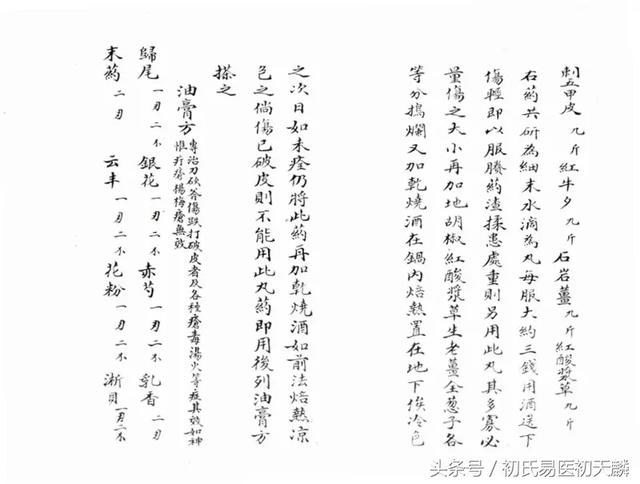 刺五甲皮 九斤 紅牛夕 九斤 石岩薑 九斤 紅酸漿草 九斤
右药共研為細末水滴為丸每服大約三錢用酒送下
傷輕即以服賸药渣揉患處重則另用此丸其多寡必
量傷之大小再加地胡椒紅酸漿草生老薑全葱子各
等分搗爛又加乾燒酒在鍋內焙熱置在地下俟冷色
之次日如未痊仍將此药再加乾燒酒如前法焙熱凉
色之倘傷已破皮則不能用此丸药即用後列油膏方
搽之
油膏方 專治刀砍斧傷跌打破皮者及各種瘡毒湯火等症其效如神
惟疔瘡楊梅瘡無效
歸尾 一刃二不 銀花 一刃二不 赤芍 一刃二不 乳香 二刃
末药 二刃 云丰 一刃二不 花粉 一刃二不 淅貝 一刃二不
头条号／初氏易医初天麟